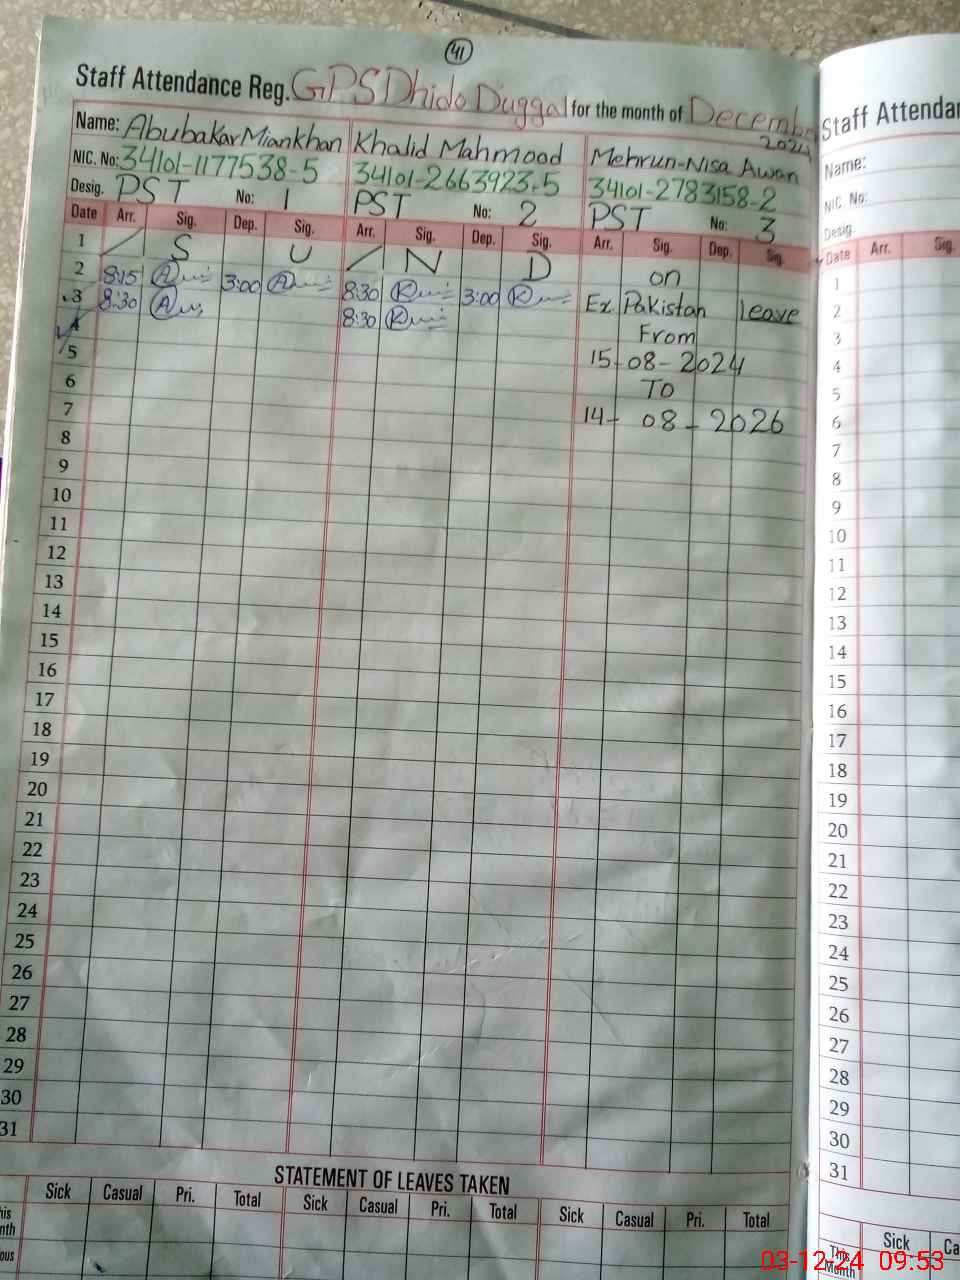 41
Staff Attendance Reg. GPS Dhido Duggal for the month of December 2024
Name: Abubakar Miankhan Khalid Mahmood Mehrun-Nisa Awan
NIC. No: 34101-1177538-5 34101-2663923-5 34101-2783158-2
Desig. PST No: 1 PST No: 2 PST No: 3
Date Arr. Sig. Dep. Sig. Arr. Sig. Dep. Sig. Arr. Sig. Dep. Sig.
1 / S U / N D on
2 8:15 3:00 8:30 3:00 Ex Pakistan leave
3 8:30 8:30 From
4 15-08-2024
5 TO
6 14-08-2026
7
8
9
10
11
12
13
14
15
16
17
18
19
20
21
22
23
24
25
26
27
28
29
30
31
STATEMENT OF LEAVES TAKEN
Sick Casual Pri. Total Sick Casual Pri. Total Sick Casual Pri. Total
his
nth
ous
Staff Attendar
Name:
NIC. No:
Desig.
Date Arr. Sig.
1
2
3
4
5
6
7
8
9
10
11
12
13
14
15
16
17
18
19
20
21
22
23
24
25
26
27
28
29
30
31
Sick Ca
This
Month
03-12-24 09:53